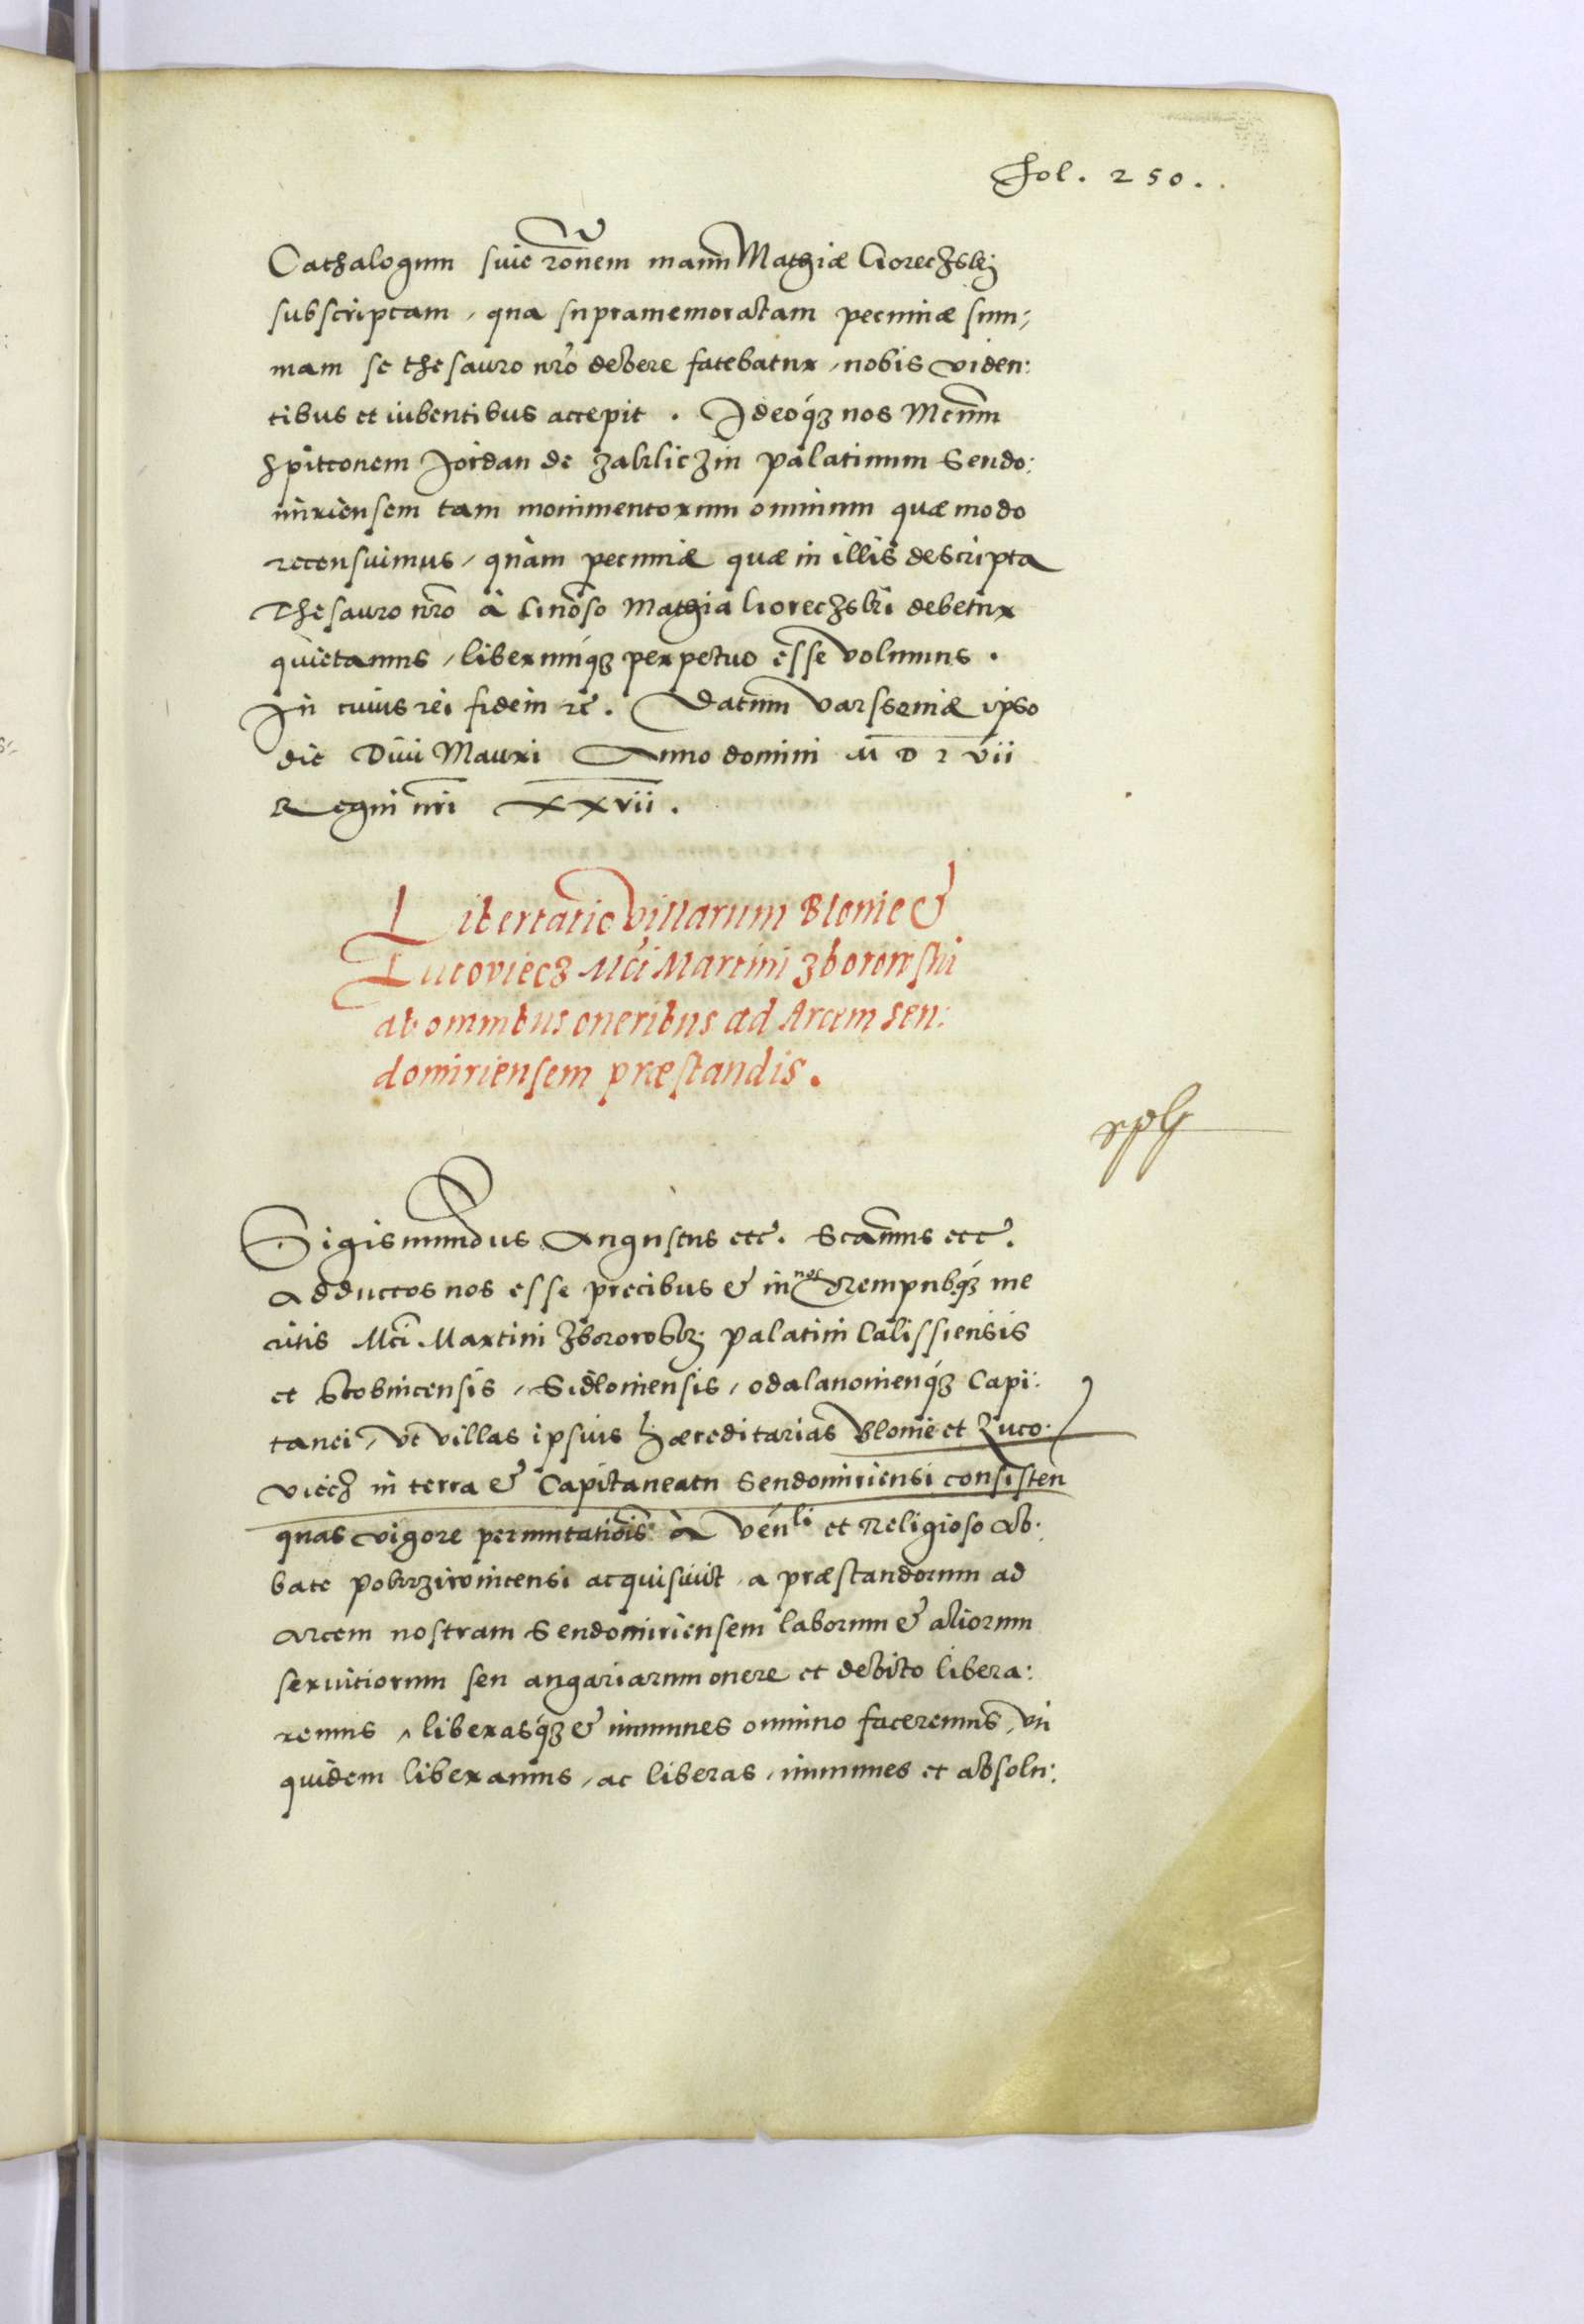 Fol. 250.
Cathalogum sive rōnem manu Mathiæ Gorechski
subscriptam, qua supramemoratam pecuniæ sum:
mam se thesauro nr̄o debere fatebatur, nobis viden:
tibus et iubentibus accepit. Ideoq́ꝫ nos Mcūm
Spitconem Jordan de Zakliczin palatinum Sendo:
miriensem tam monimentorum omnium quæ modo
recensuimus, quàm pecuniæ quæ in illis descripta
Thesauro nr̄o à Gn̄oso Mathia Gorechski debetur
quietamus, liberumq́ꝫ perpetuo esse volumus.
In cuius rei fidem ꝛc̄. Datum Varssoviæ ipso
die Divi Mauri Anno domini M D L vii
Regni nr̄i XXvii.
Libertatio villarum Blonie &
Lucoviecz Mci Martini Zborowski
ab omnibus oneribus ad Arcem Sen:
domiriensem præstandis.
Sigismundus Augustus etc̄. Scamus etc̄.
Adductos nos esse precibus & in nos Rempubq́ꝫ me
ritis Mci Martini Zborowski palatini Calissiensis
et Stobnicensis, Sidloviensis, Odalanovienq́ꝫ Capi:
tanei, ut villas ipsius hæreditarias Blonie et Luco:
viecz in terra & Capitaneatu Sendomiriensi consisten
quas vigore permutatiōis à Ven̄li et Religioso Ab:
bate Pokrziwnicensi acquisivit, a præstandorum ad
Arcem nostram Sendomiriensem laborum & aliorum
servitiorum seu angariarum onere et debito libera:
remus, liberasq́ꝫ & immunes omnino faceremus, uti
quidem liberamus, ac liberas, immunes et absolu: